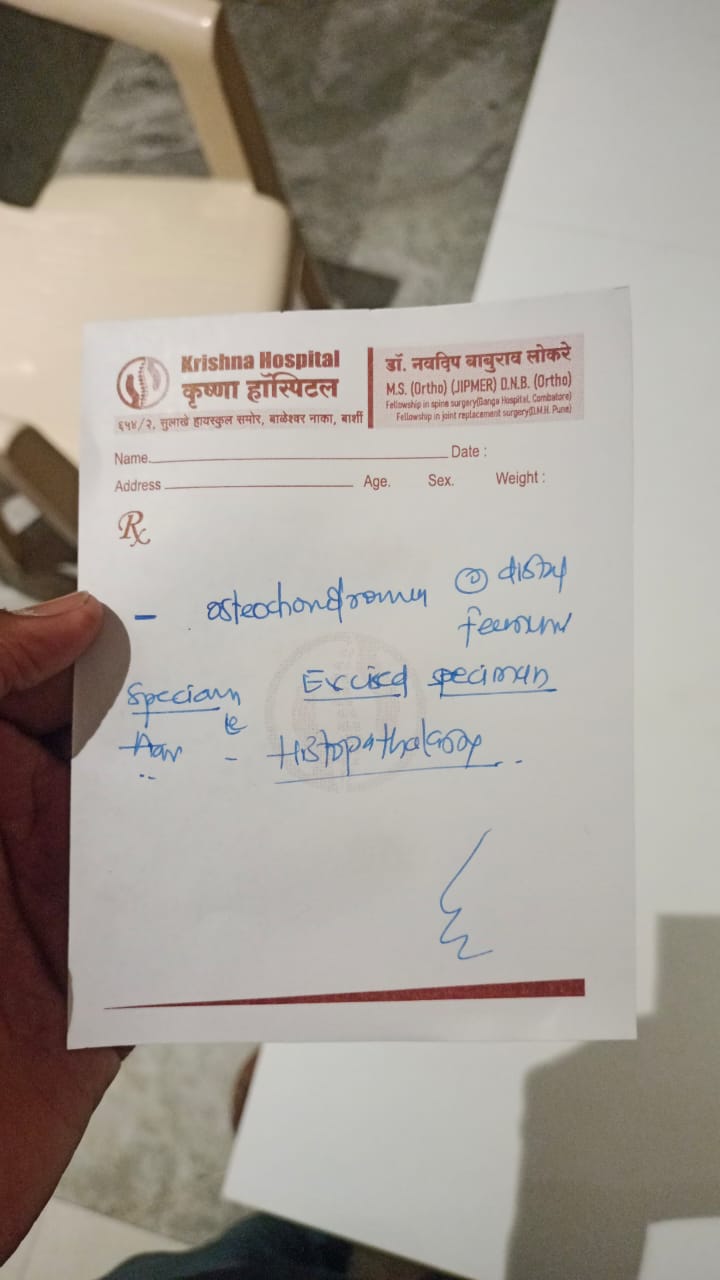 Krishna Hospital
कृष्णा हॉस्पिटल
६५४/२, सुलाखे हायस्कुल समोर, बाळेश्वर नाका, बार्शी
डॉ. नवदिप बाबुराव लोकरे
M.S. (Ortho) (JIPMER) D.N.B. (Ortho)
Fellowship in spine surgery(Ganga Hospital, Combatore)
Fellowship in joint replacement surgery(D.M.H. Pune)
Name. Date :
Address Age. Sex. Weight :
Rx
- osteochondroma distal
femur
Excised speciman
- Histopathology.